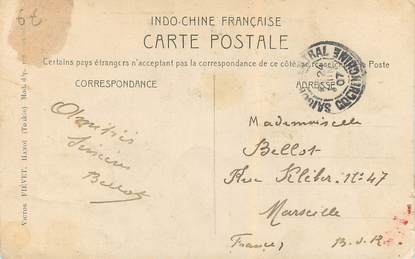 INDO-CHINE FRANÇAISE
CARTE POSTALE
Certains pays étrangers n'acceptant pas la correspondance de ce côté, se renseigner Poste
CORRESPONDANCE
ADRESSE
SAIGON CENTRAL
07
COCHINCHINE
Amitiés
Sincères
Bellot
Mademoiselle
Bellot
Rue Kléber. No 47
Marseille
France, B.d.R.
VICTOR FIÉVET, HANOÏ (Tonkin)